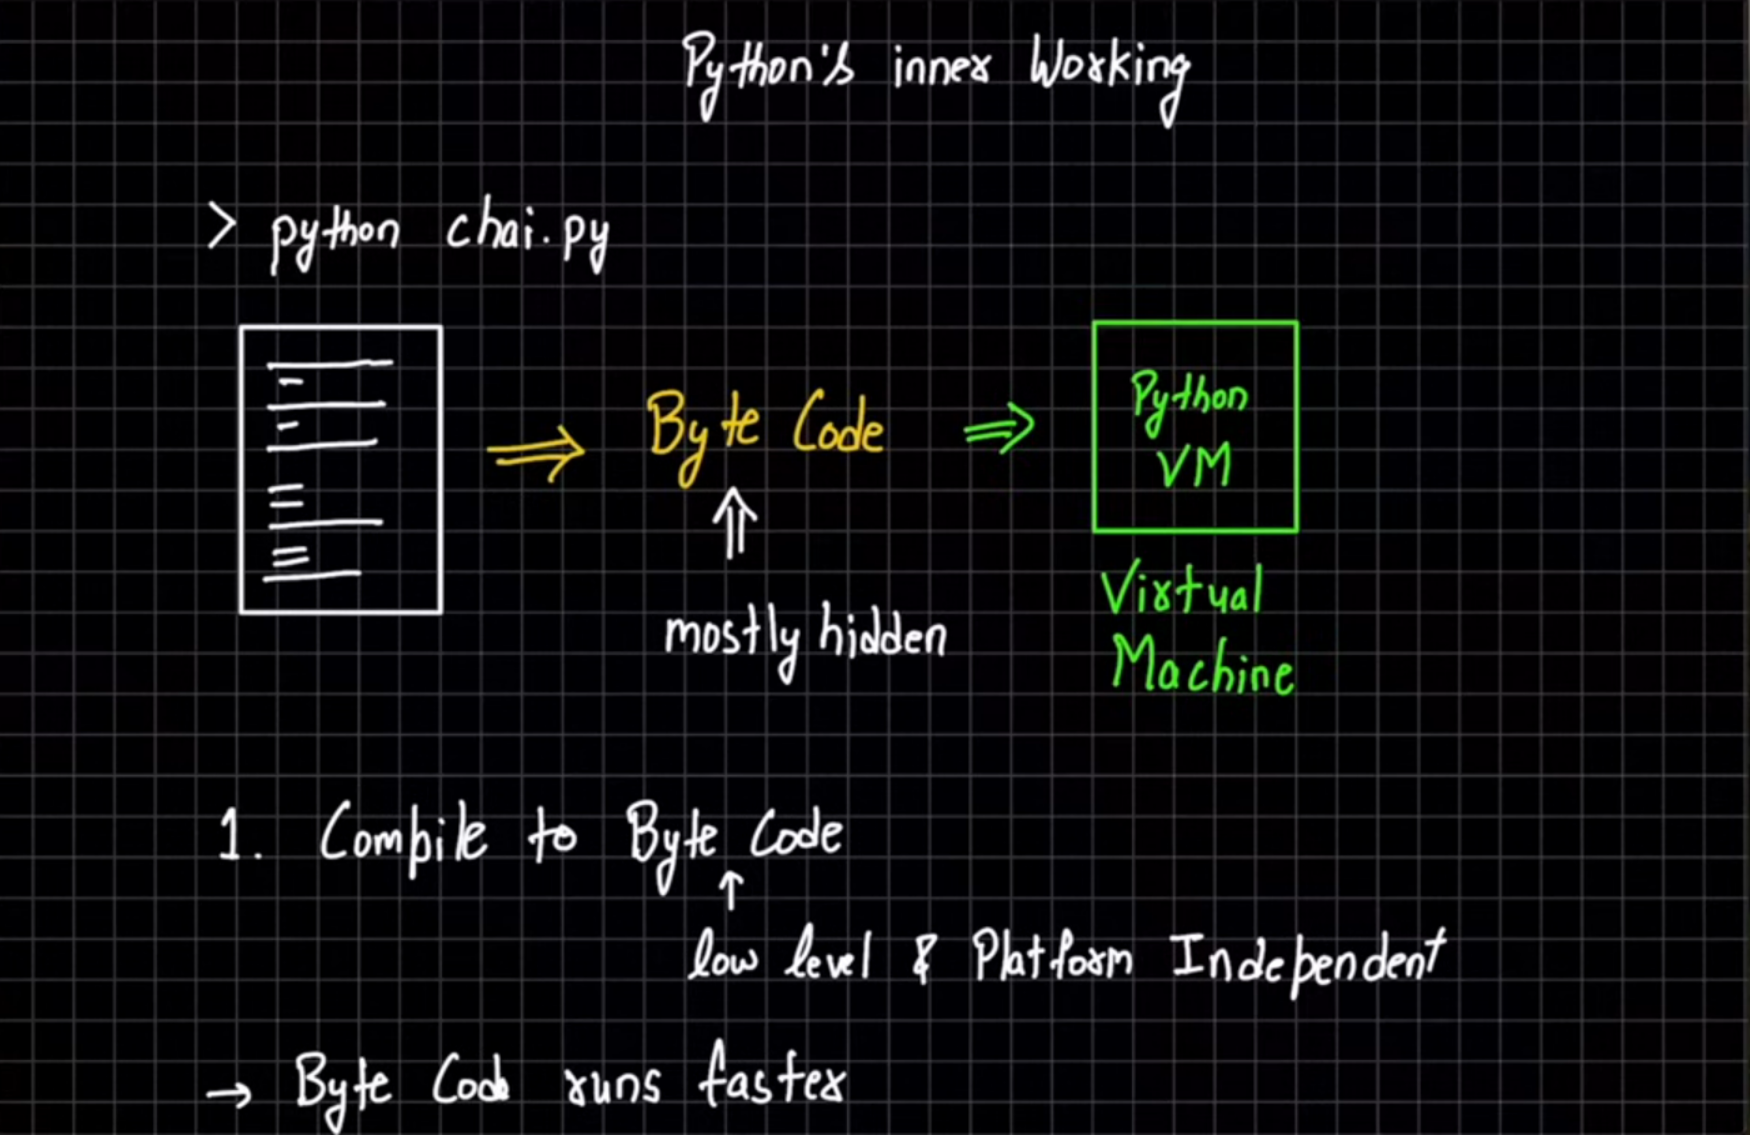 Python's inner Working
> python chai.py
Byte Code
Python
VM
mostly hidden
Virtual
Machine
1. Compile to Byte Code
low level & Platform Independent
→ Byte Code runs faster